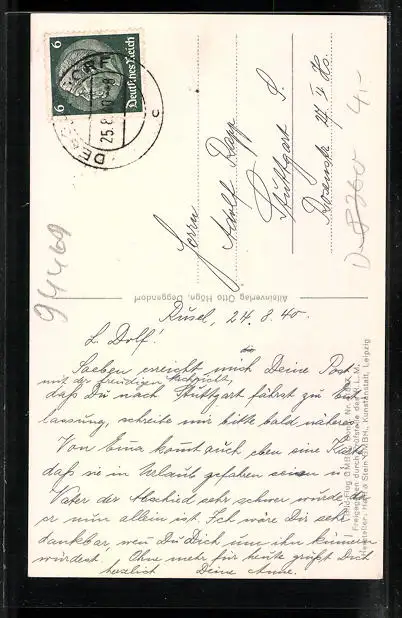 6
6
Deutsches Reich
DEGGENDORF
25.8.40
c
Herrn
Adolf Rapp
Stuttgart S.
Römerstr. 74 II Hs
D-8360 4,-
94469
Alleinverlag Otto Högn, Deggendorf
Rusel, 24.8.40.
L. Dolf!
Soeben erreicht mich Deine Post
mit der freudigen Nachricht,
daß Du nach Stuttgart fährst zu Ent
lassung, schreibe mir bitte bald näheres.
Von Emma kommt auch eben eine Karte
daß sie in Urlaub gefahren seien u.
Vater der Abschied sehr schwer wurde da
er nun allein ist. Ich wäre Dir sehr
dankbar, wenn Du Dich um ihn kümmern
würdest. Ohne mehr für heute grüßt Dich
herzlich Deine Anne.
Freigegeben durch Prüfstelle des R.L.M.
Hersteller: & Stein GMBH., Kunstanstalt, Leipzig